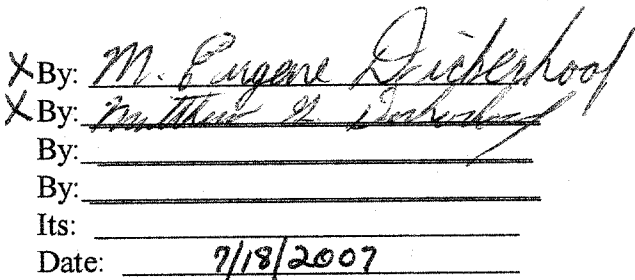 X By: M. Eugene Deicherhoof
X By: Matthew
By:
By:
Its:
Date: 7/18/2007